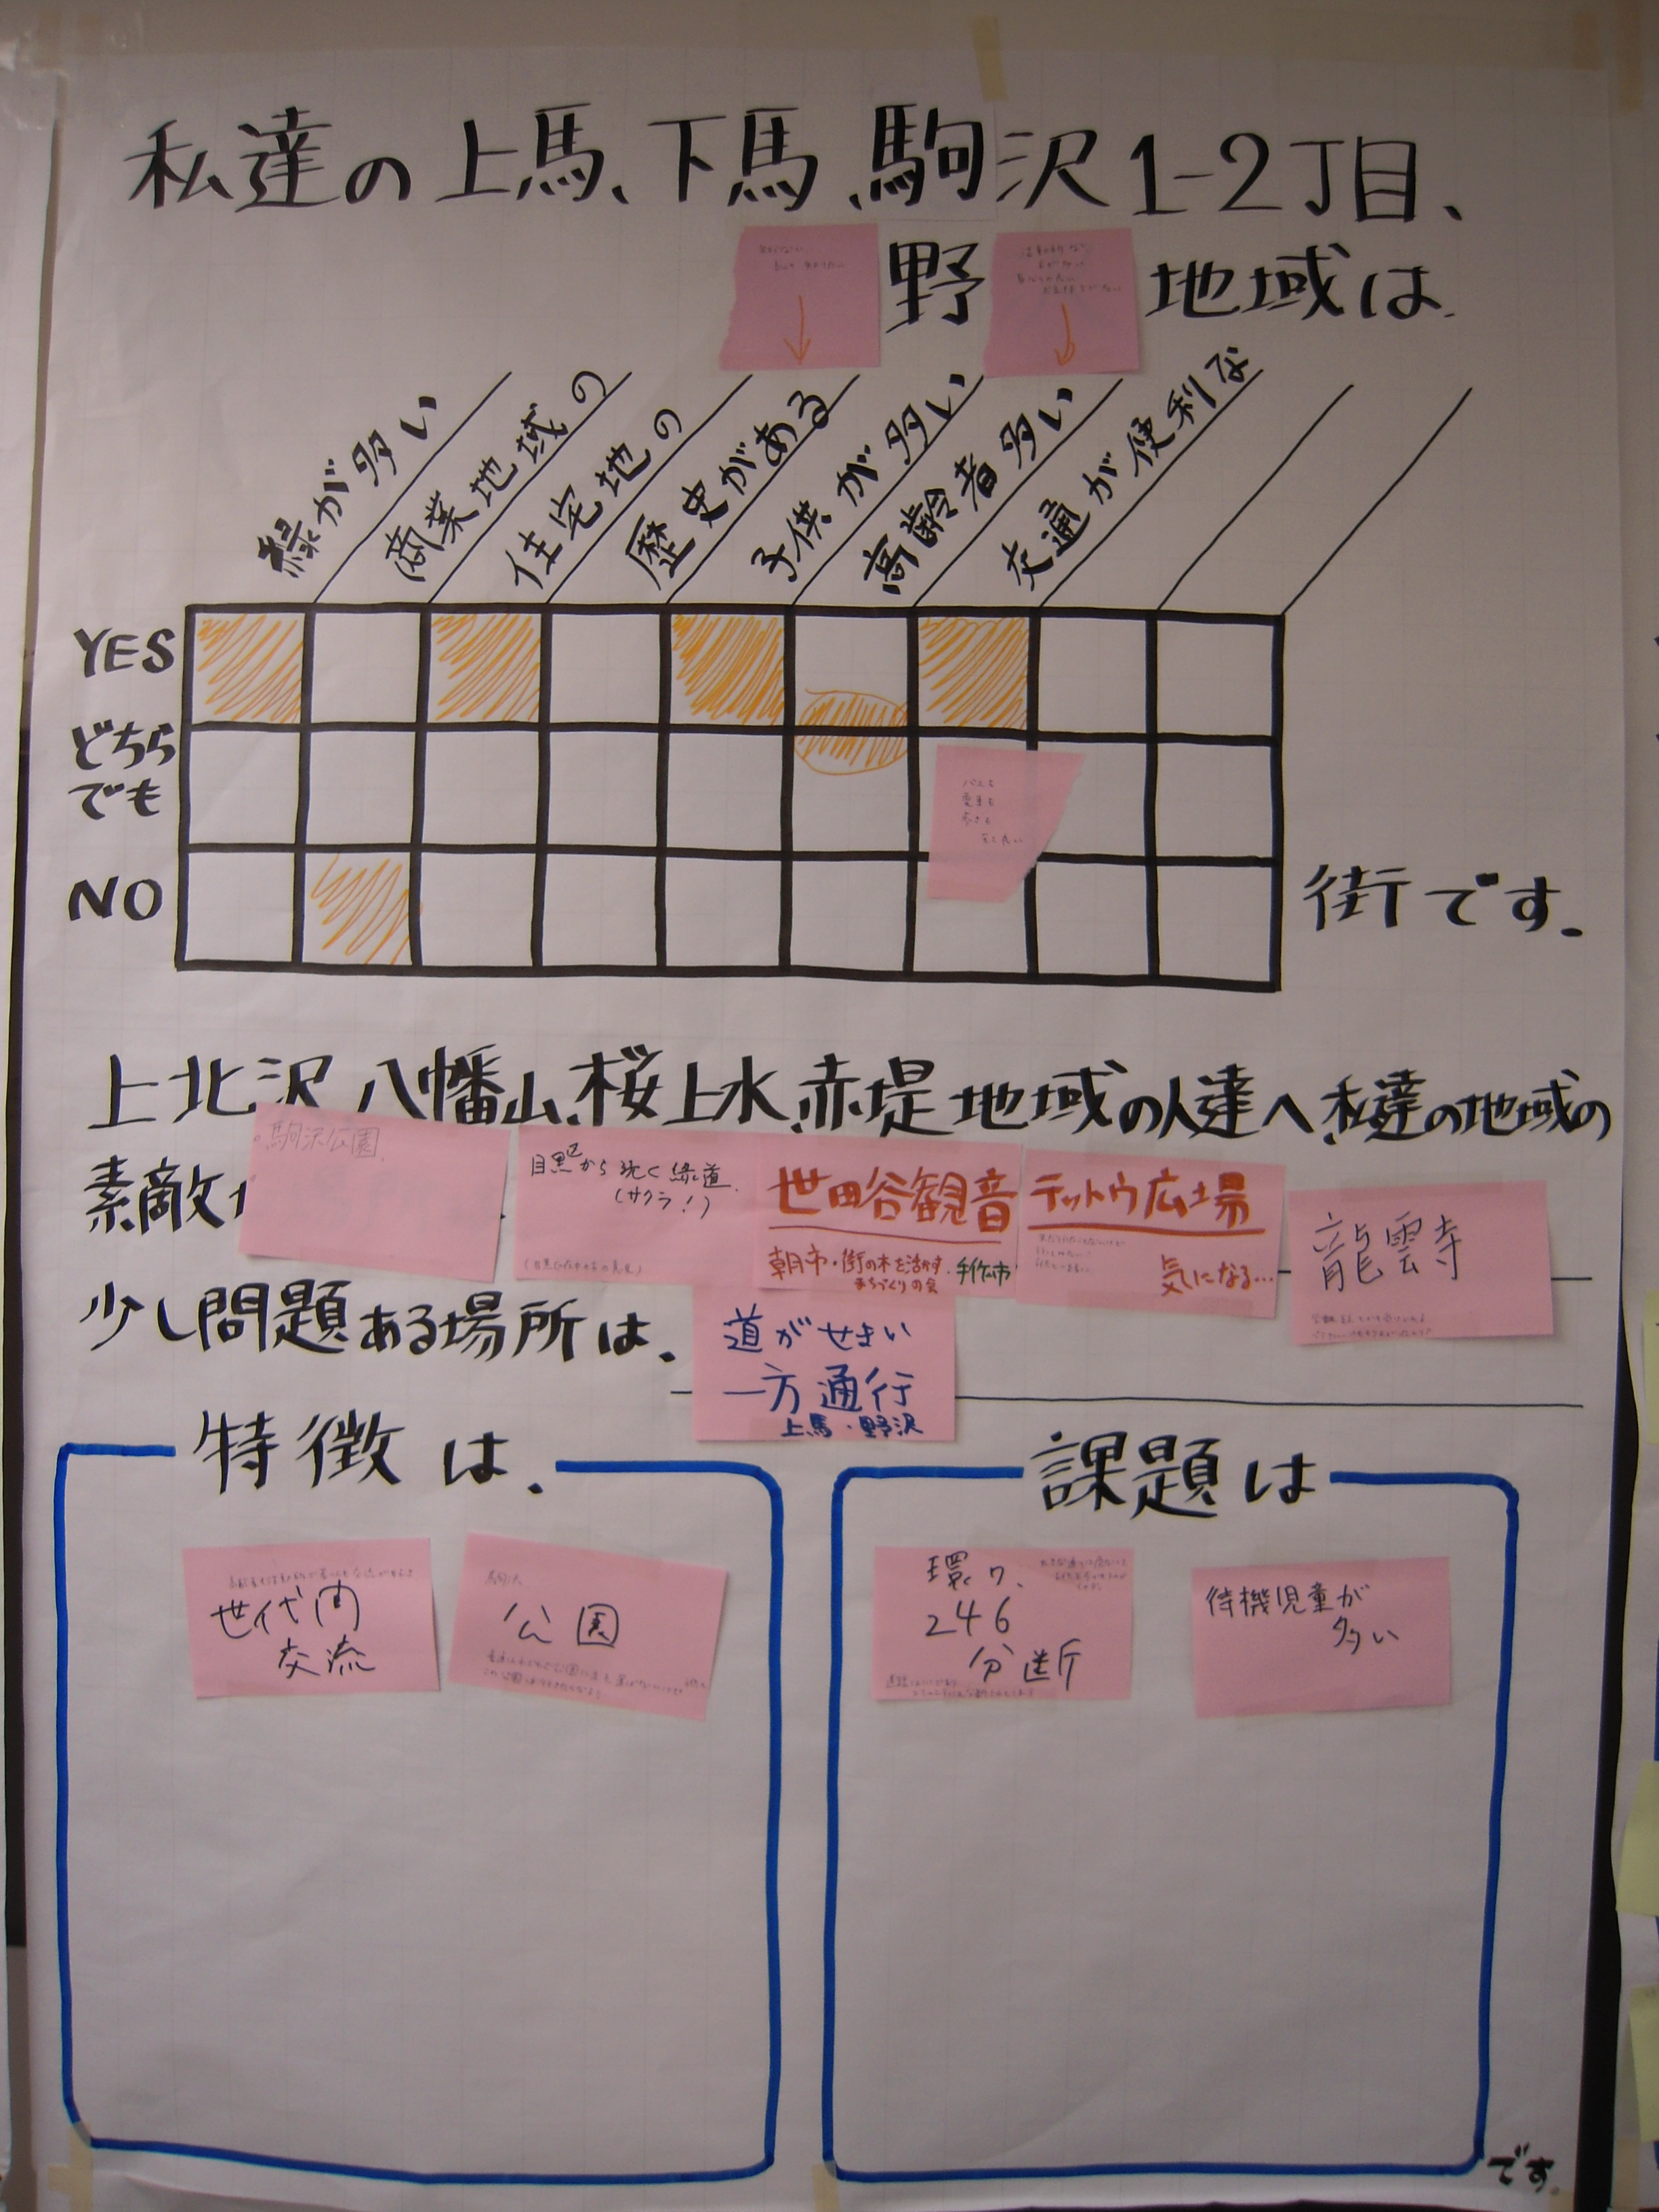 私達の上馬、下馬、駒沢1-2丁目、
野 地域は
緑が多い
商業地域の
住宅地の
歴史がある
子供が多い
高齢者多い
交通が便利な
YES
どちら
でも
NO
街です.
上北沢、八幡山、桜上水、赤堤地域の人達へ、私達の地域の
素敵
駒沢公園
目黒区から続く緑道
(サクラ!)
世田谷観音
朝市・街の木を活かす
まちづくりの会
手作市
テットウ広場
気になる…
龍雲寺
少し問題ある場所は、
道がせまい
一方通行
上馬・野沢
特徴は、
世代間
交流
駒沢
公園
課題は
環7、
246
分断
待機児童が
多い
です.